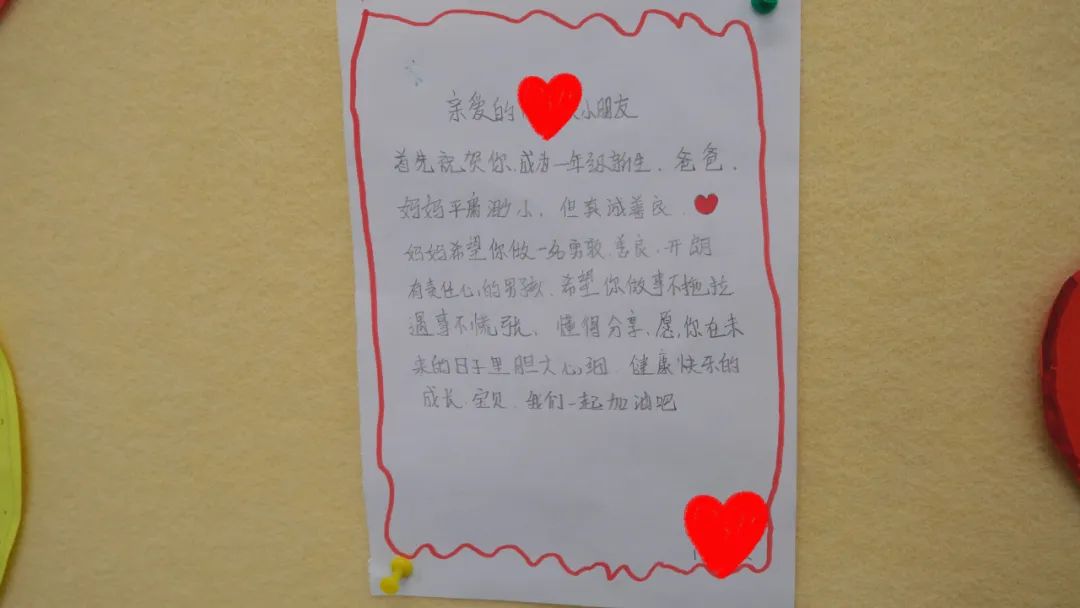 亲爱的 小朋友
首先祝贺你,成为一年级新生,爸爸,
妈妈平庸渺小,但真诚善良,
妈妈希望你做一名勇敢、善良、开朗
有责任心的男孩、希望你做事不拖拉
遇事不慌张、懂得分享、愿你在未
来的日子里胆大心细、健康快乐的
成长、宝贝、我们一起加油吧